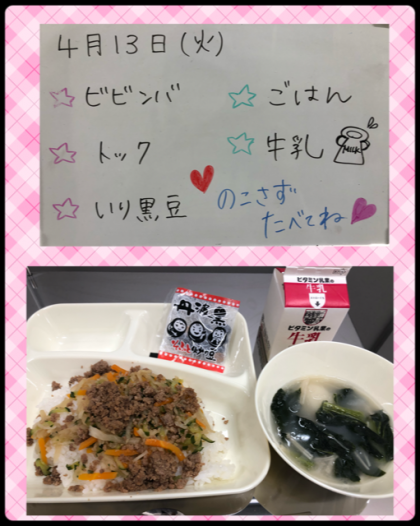 4月13日(火)
☆ ビビンバ
☆ ごはん
☆ トック
☆ 牛乳
MILK
☆ いり黒豆
のこさず
たべてね
丹波黒
ビタミン乳業の
牛乳
ビタミン乳業の
牛乳